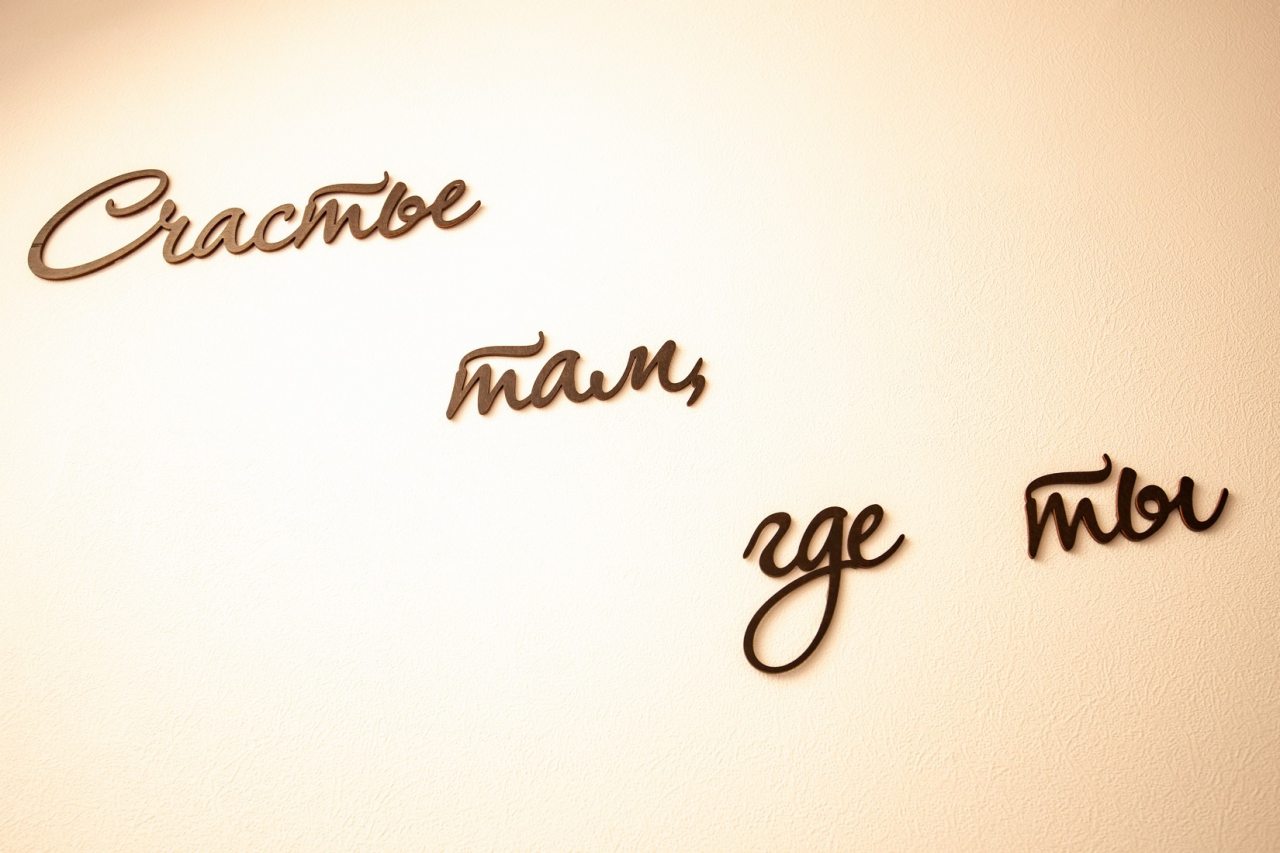 Счастье
там,
где ты